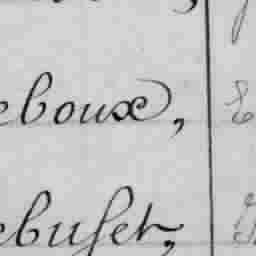 eboux,
ebuset,